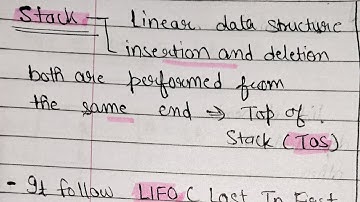 Stack - Linear data structure
insertion and deletion
both are performed from
the same end → Top of
Stack (TOS)
- It follow LIFO ( Last In First